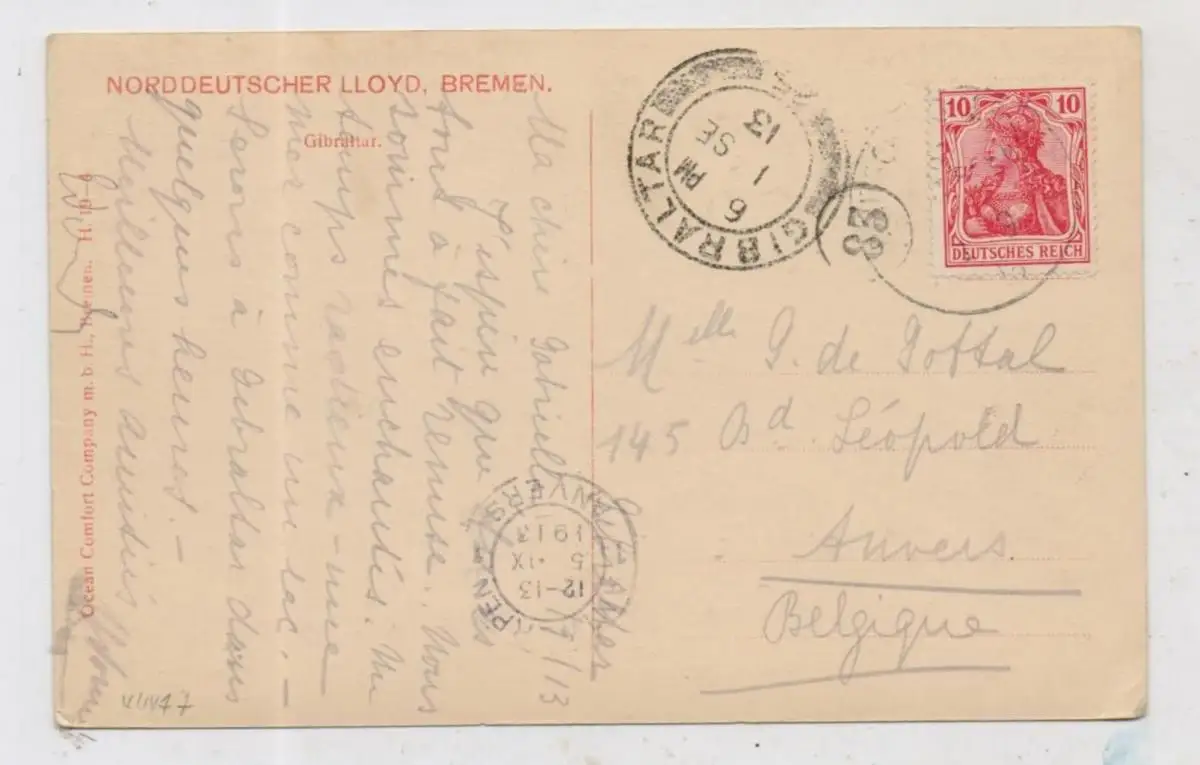 NORDDEUTSCHER LLOYD, BREMEN.
Gibraltar.
Ocean Comfort Company m. b. H., Bremen. H. 19
GIBRALTAR
6 PM
1 SE
13
10 10
DEUTSCHES REICH
ANVERS
12-13
5 IX
1913
Melle G. de
145 Bd Léopold
Anvers
Belgique
1/9/13
Ma chère Gabrielle
J'espère que
tout à fait remise. Nous
sommes enchantés. Un
temps radieux - une
mer comme un lac. -
Serons à Gibraltar dans
quelques heures. -
Meilleures amitiés